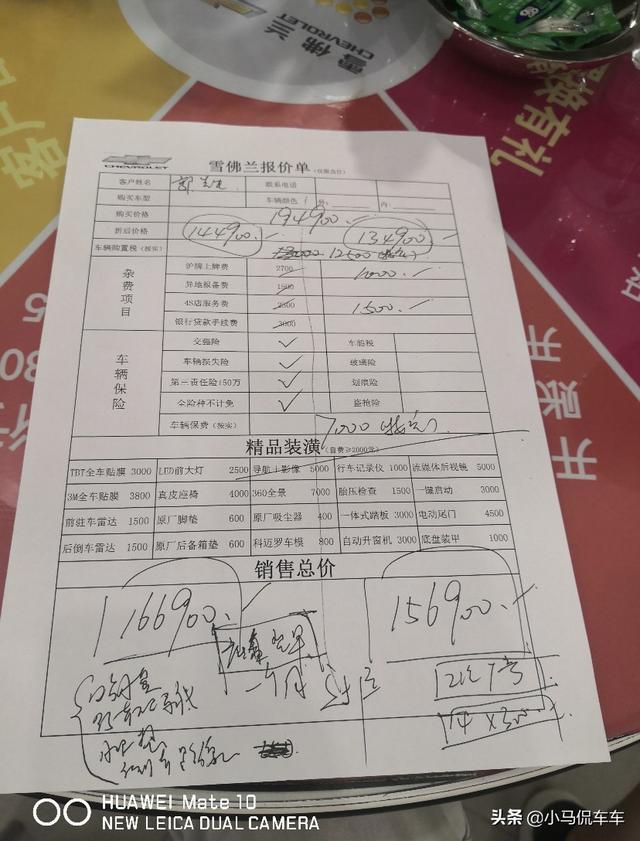 雪佛兰
CHEVROLET
焕有礼
开
展
开
CHEVROLET
雪佛兰报价单
客户姓名 郭先生 联系电话
购买车型 车辆颜色 外： 内：
购买价格 194900
折后价格 144900 134900
车辆购置税（按实） 12500
杂费项目
沪牌上牌费 2700 1000
异地报备费 1500
4S店服务费 2500 1500
银行贷款手续费 3000
车辆保险
交强险 ✓ 车船税
车辆损失险 ✓ 玻璃险
第三责任险150万 ✓ 划痕险
全险种不计免 ✓ 盗抢险
车辆保费（按实） 7000
精品装潢（自费≥2000元）
TBT全车贴膜 3000 LED前大灯 2500 导航+影像 5000 行车记录仪 1000 流媒体后视镜 5000
3M全车贴膜 3800 真皮座椅 4000 360全景 7000 胎压检查 1500 一键启动 3000
前驻车雷达 1500 原厂脚垫 600 原厂吸尘器 400 一体式踏板 3000 电动尾门 4500
后倒车雷达 1500 原厂后备箱垫 600 科迈罗车模 800 自动升窗机 3000 底盘装甲 1000
销售总价
166900 156900
一个月
HUAWEI Mate 10
NEW LEICA DUAL CAMERA
头条 @小马侃车车